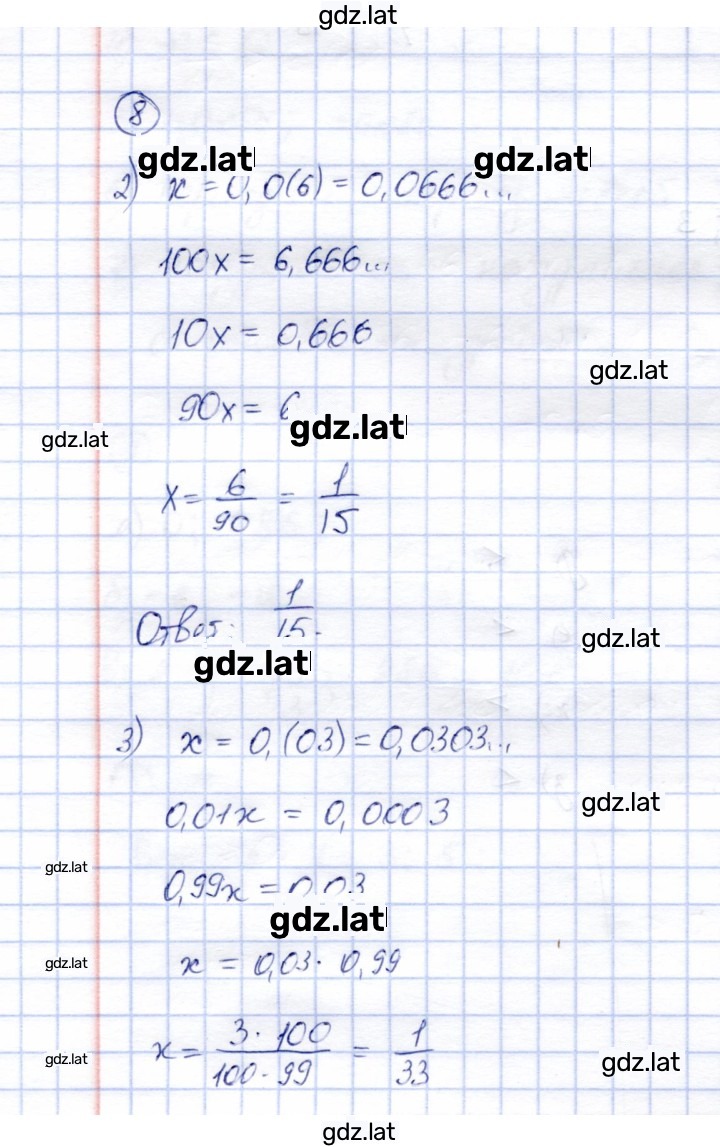 gdz.lat
8
gdz.lat gdz.lat
2) x = 0,0(6) = 0,0666...
100x = 6,666...
10x = 0,666
gdz.lat
90x = 6
gdz.lat
gdz.lat
x = 6/90 = 1/15
Ответ: 1/15.
gdz.lat
gdz.lat
3) x = 0,(03) = 0,0303...
gdz.lat
0,01x = 0,0003
gdz.lat
0,99x = 0,03
gdz.lat
x = 0,03 · 0,99
gdz.lat
x = 3·100/100·99 = 1/33
gdz.lat
gdz.lat
gdz.lat